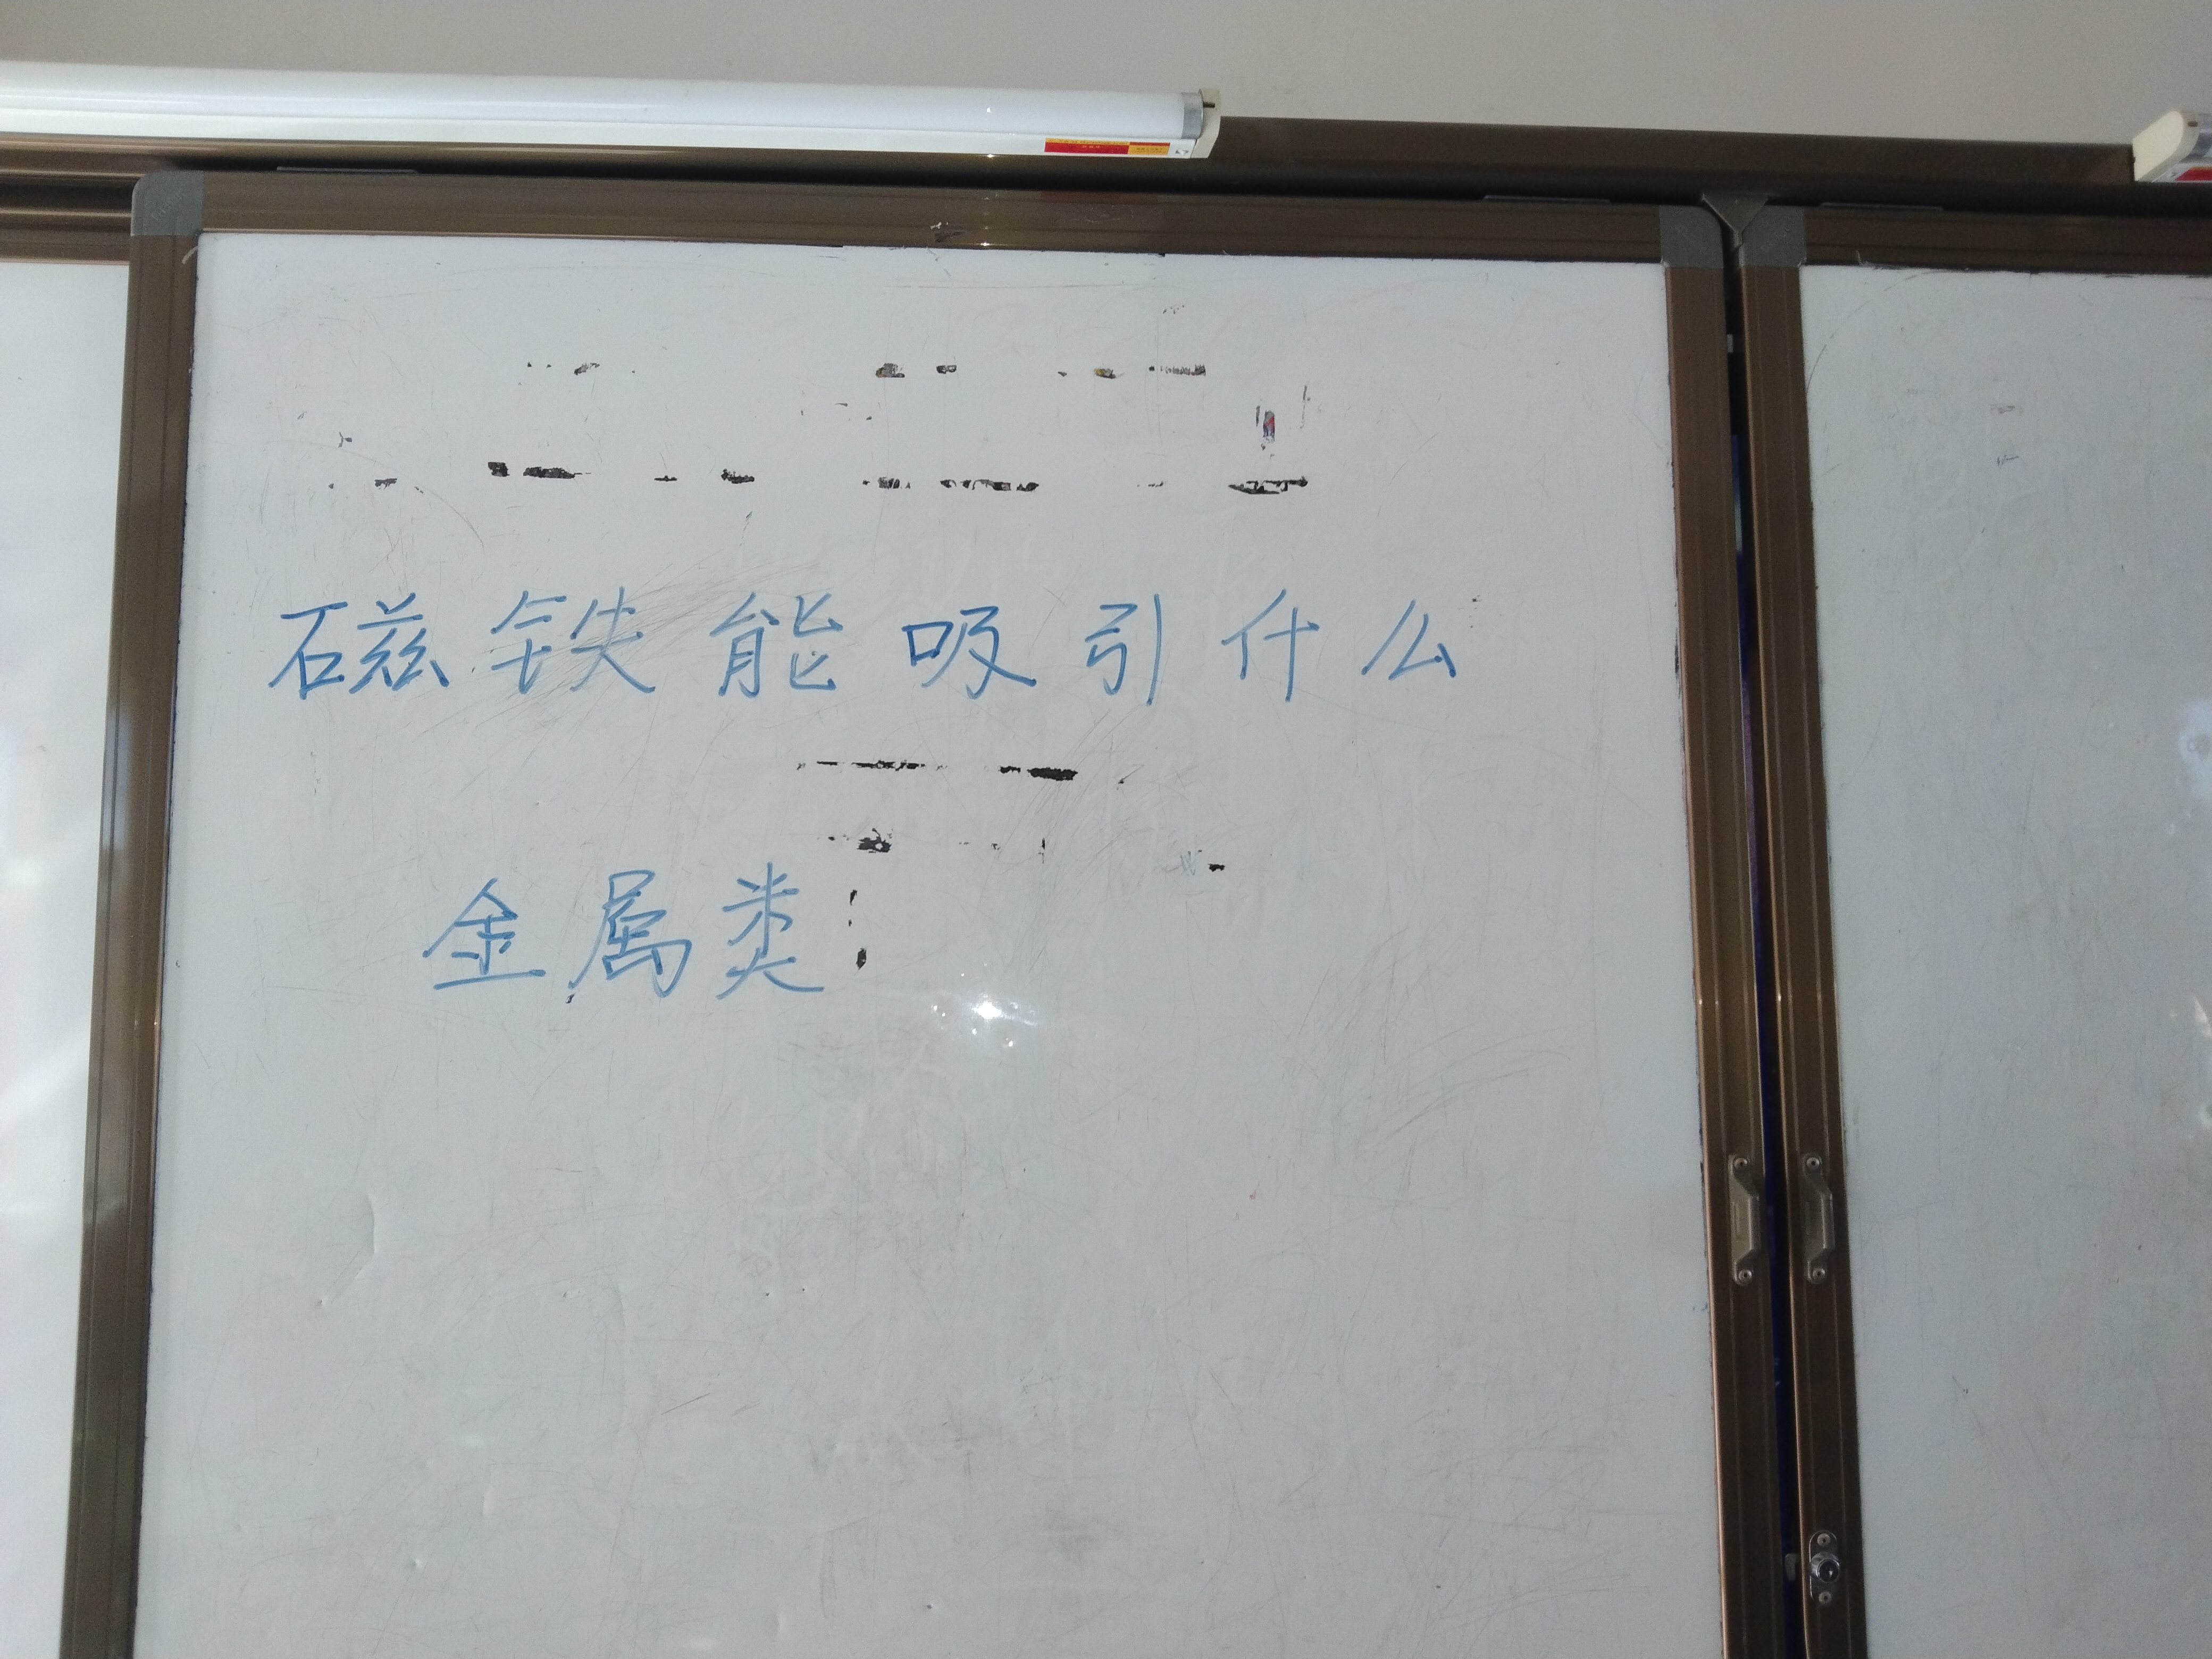 磁铁能吸引什么
金属类